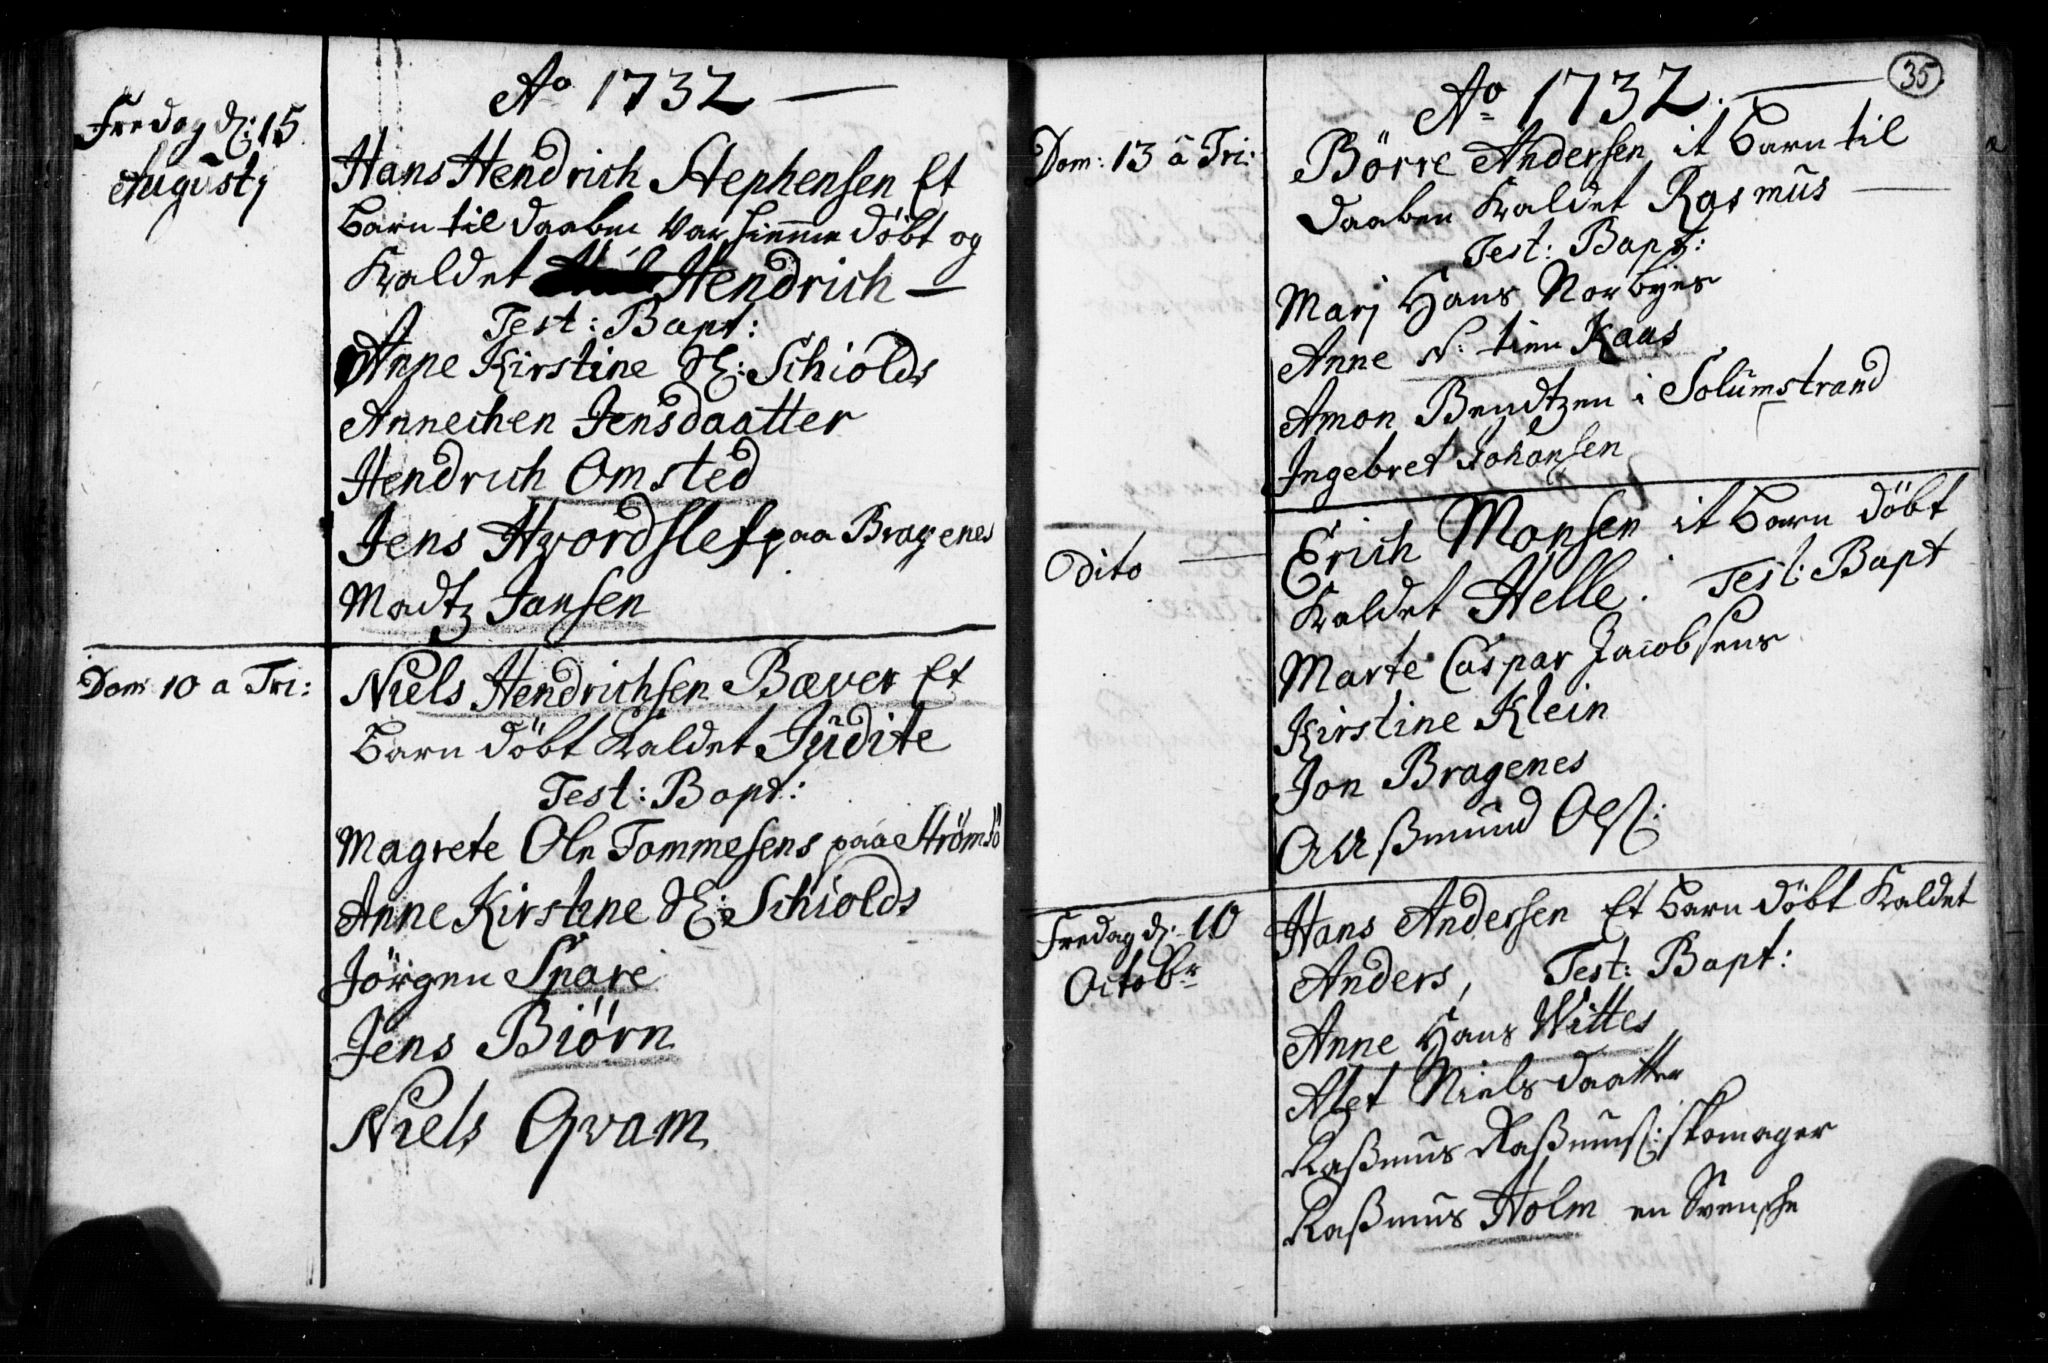 Ao 1732
Fredag d: 15
Augustj
Hans Hendrich Stephensen Et
barn til daaben var hiemme döbt og
Kaldet Hendrich
Test: Bapt:
Anne Kirstine Sl: Schiolds
Annechen Jensdaatter
Hendrich Omsted
Jens Hvordslef paa Bragenes
Madtz Jansen
Dom 10 a Tri:
Niels Hendrichsen Bæver Et
barn döbt Kaldet Jüdite
Test: Bapt:
Magrete Ole Tommesens paa Strömsö
Anne Kirstine Sl: Schiolds
Jörgen Spare
Jens Biörn
Niels Qvam
35
Ao 1732.
Dom: 13 a Tri:
Börre Andersen it barn til
daaben Kaldet Rasmus
Test: Bapt:
Marj Hans Norbyes
Anne N: tien Kaas
Amon Bendtzen i Solumstrand
Ingebret Johansen
Dito
Erich Monsen it barn döbt
Kaldet Helle. Test: Bapt
Marte Caspar Jacobsens
Kirstine Klein
Jon Bragenes
Aaßmund Ols:
Fredag d: 10
Octobr
Hans Andersen Et barn döbt Kaldet
Anders, Test: Bapt:
Anne Hans Wittes
Alet Niels daatter
Raßmus Raßmus: skomager
Raßmus Holm en Svensche